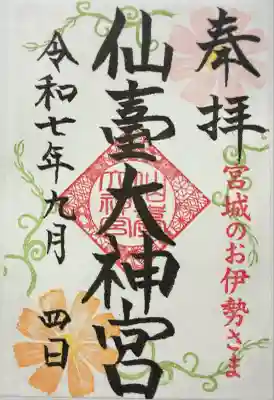 奉拝
宮城のお伊勢さま
仙臺大神宮
令和七年九月 四日